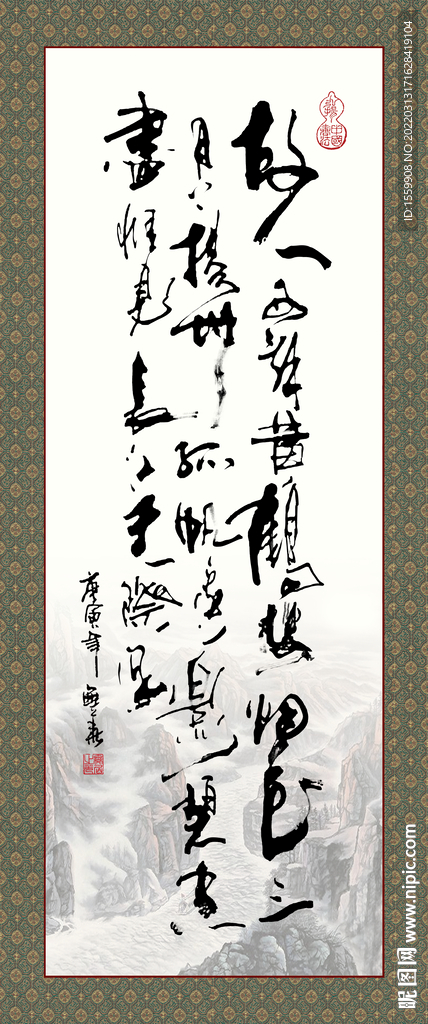 故人西辭黃鶴樓烟花三
月下揚州孤帆遠影碧空
盡惟見長江天際流
庚寅年
中國書法
ID:1559908 NO:20220313171628419104
昵图网 www.nipic.com